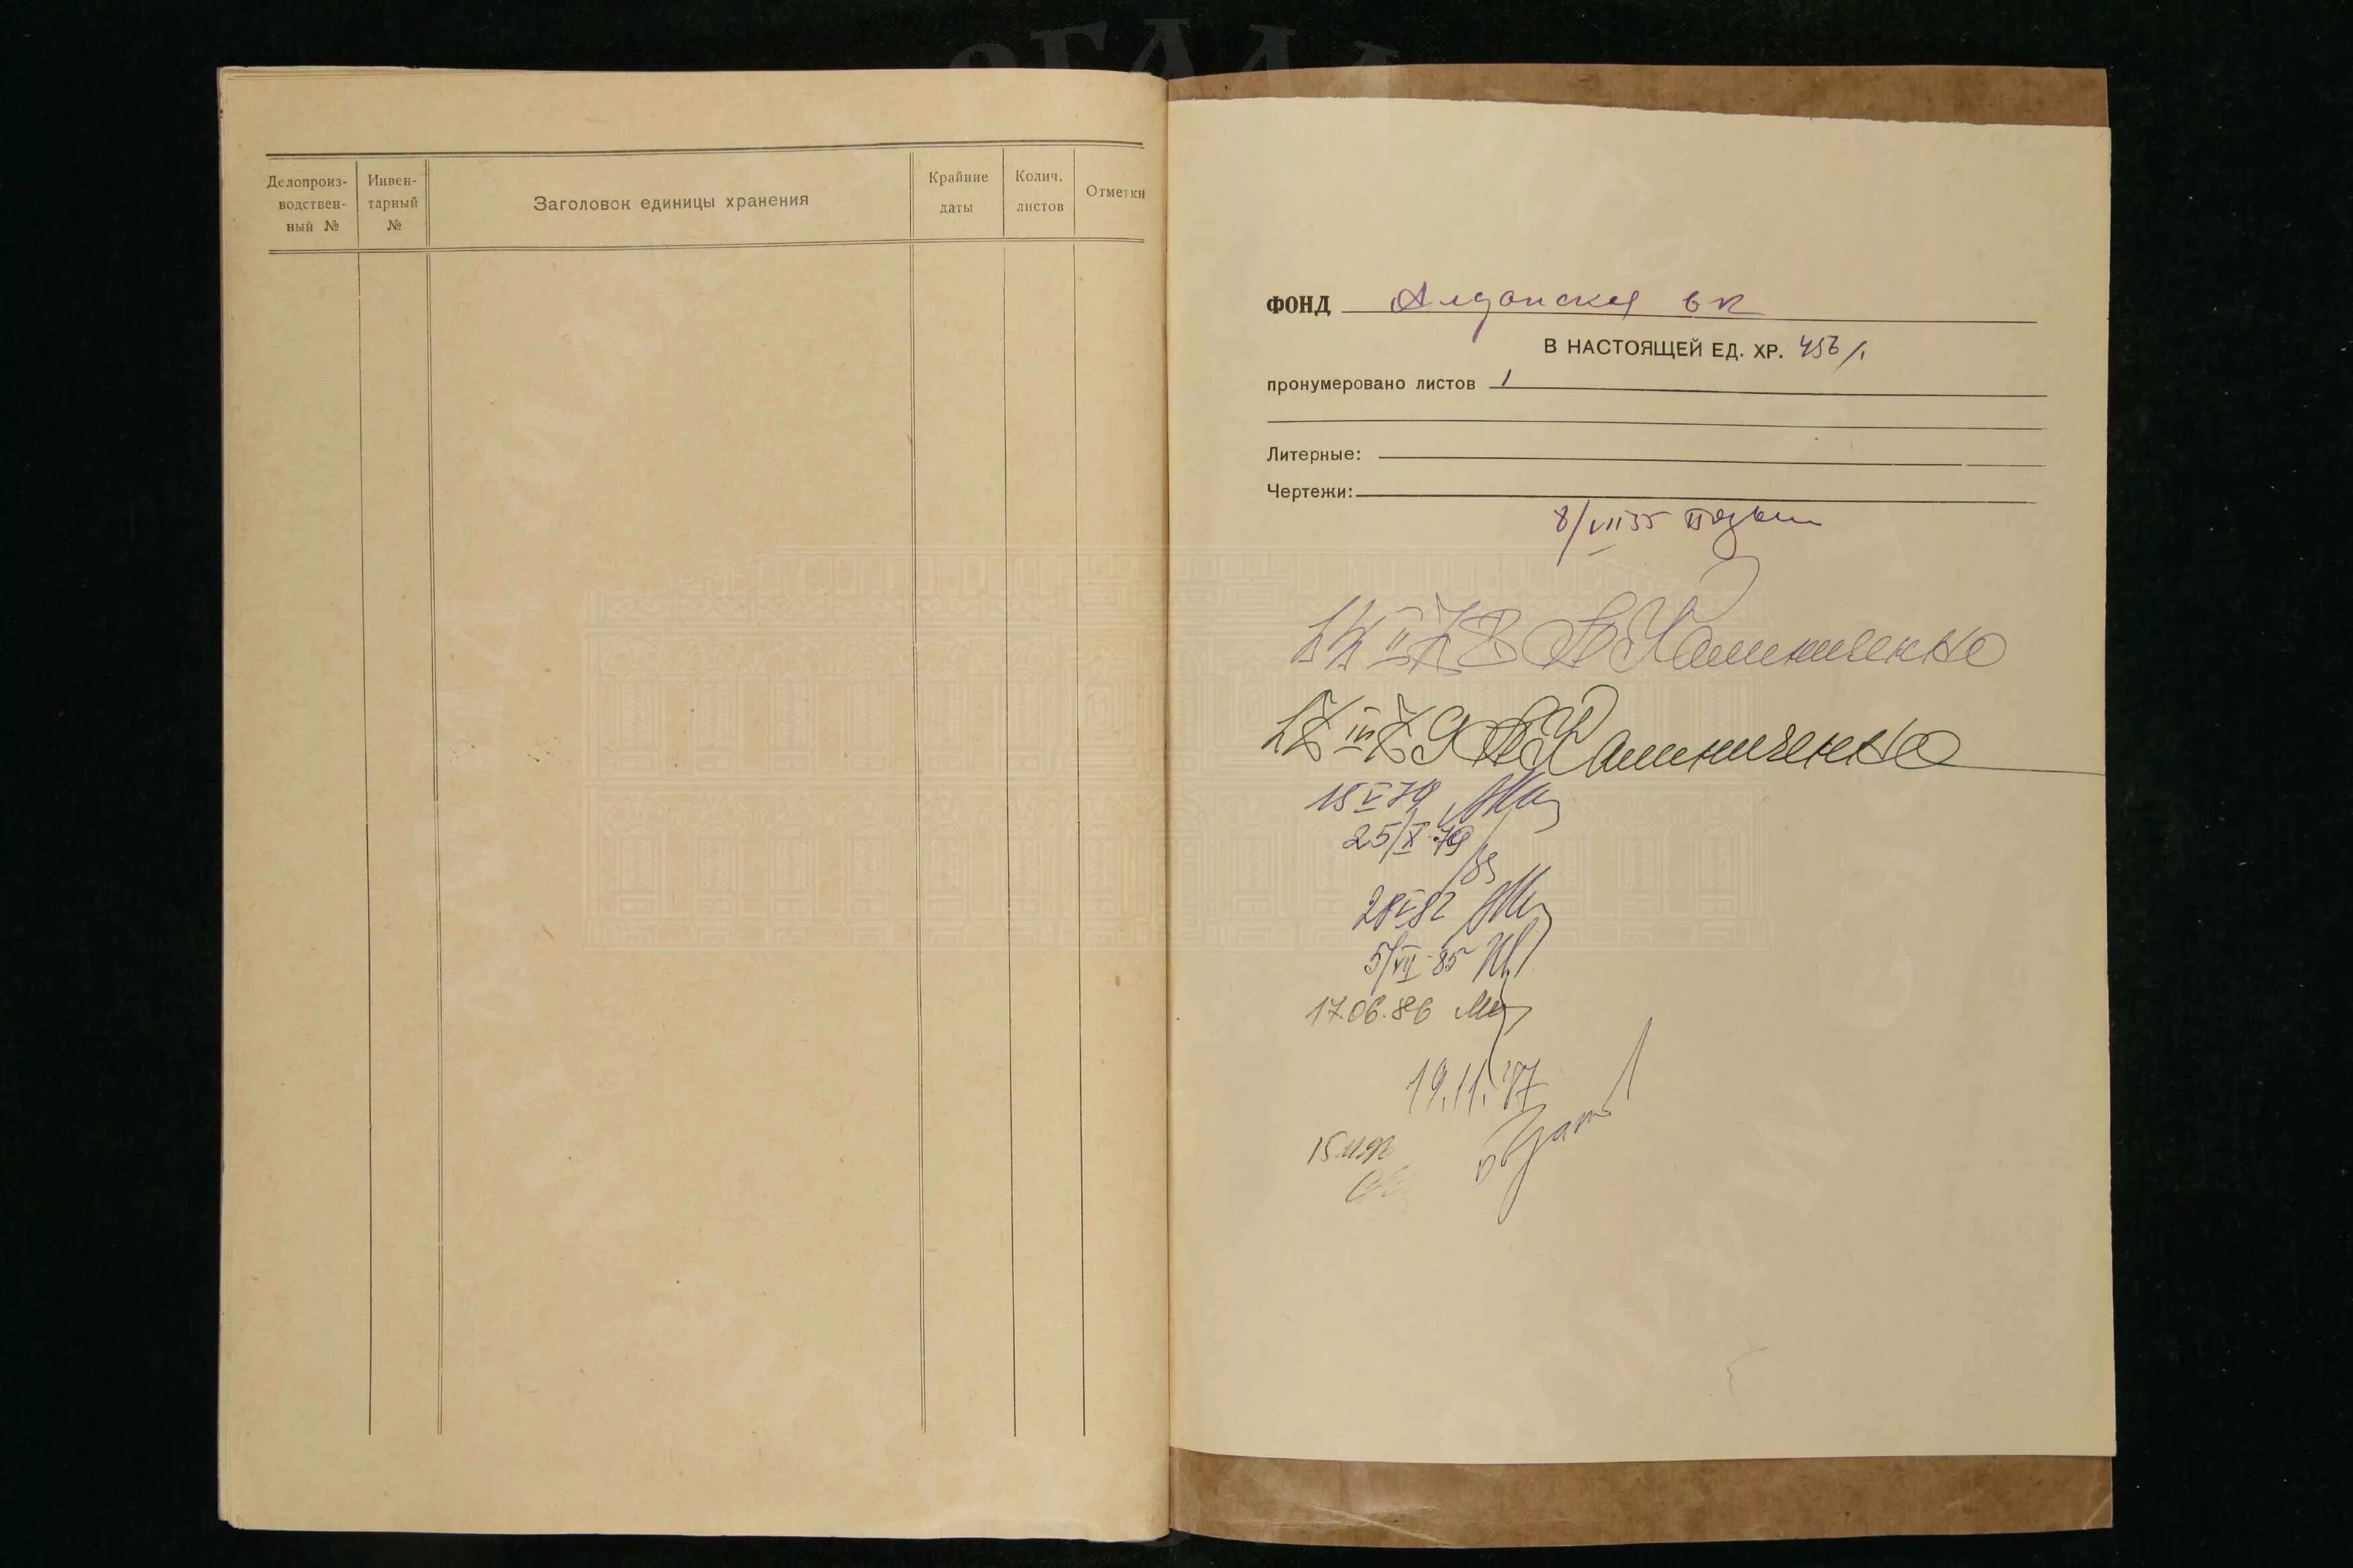 Делопроиз-
водствен-
ный №
Инвен-
тарный
№
Заголовок единицы хранения
Крайние
даты
Колич.
листов
Отметки
ФОНД Алданская вк
В НАСТОЯЩЕЙ ЕД. ХР. 456/1
пронумеровано листов 1
Литерные:
Чертежи:
8/VII 55
Калиниченко
III 79 Калиниченко
15 V 79
25/X 79
28 V 82
5/VII-85
17.06.86
19.11.